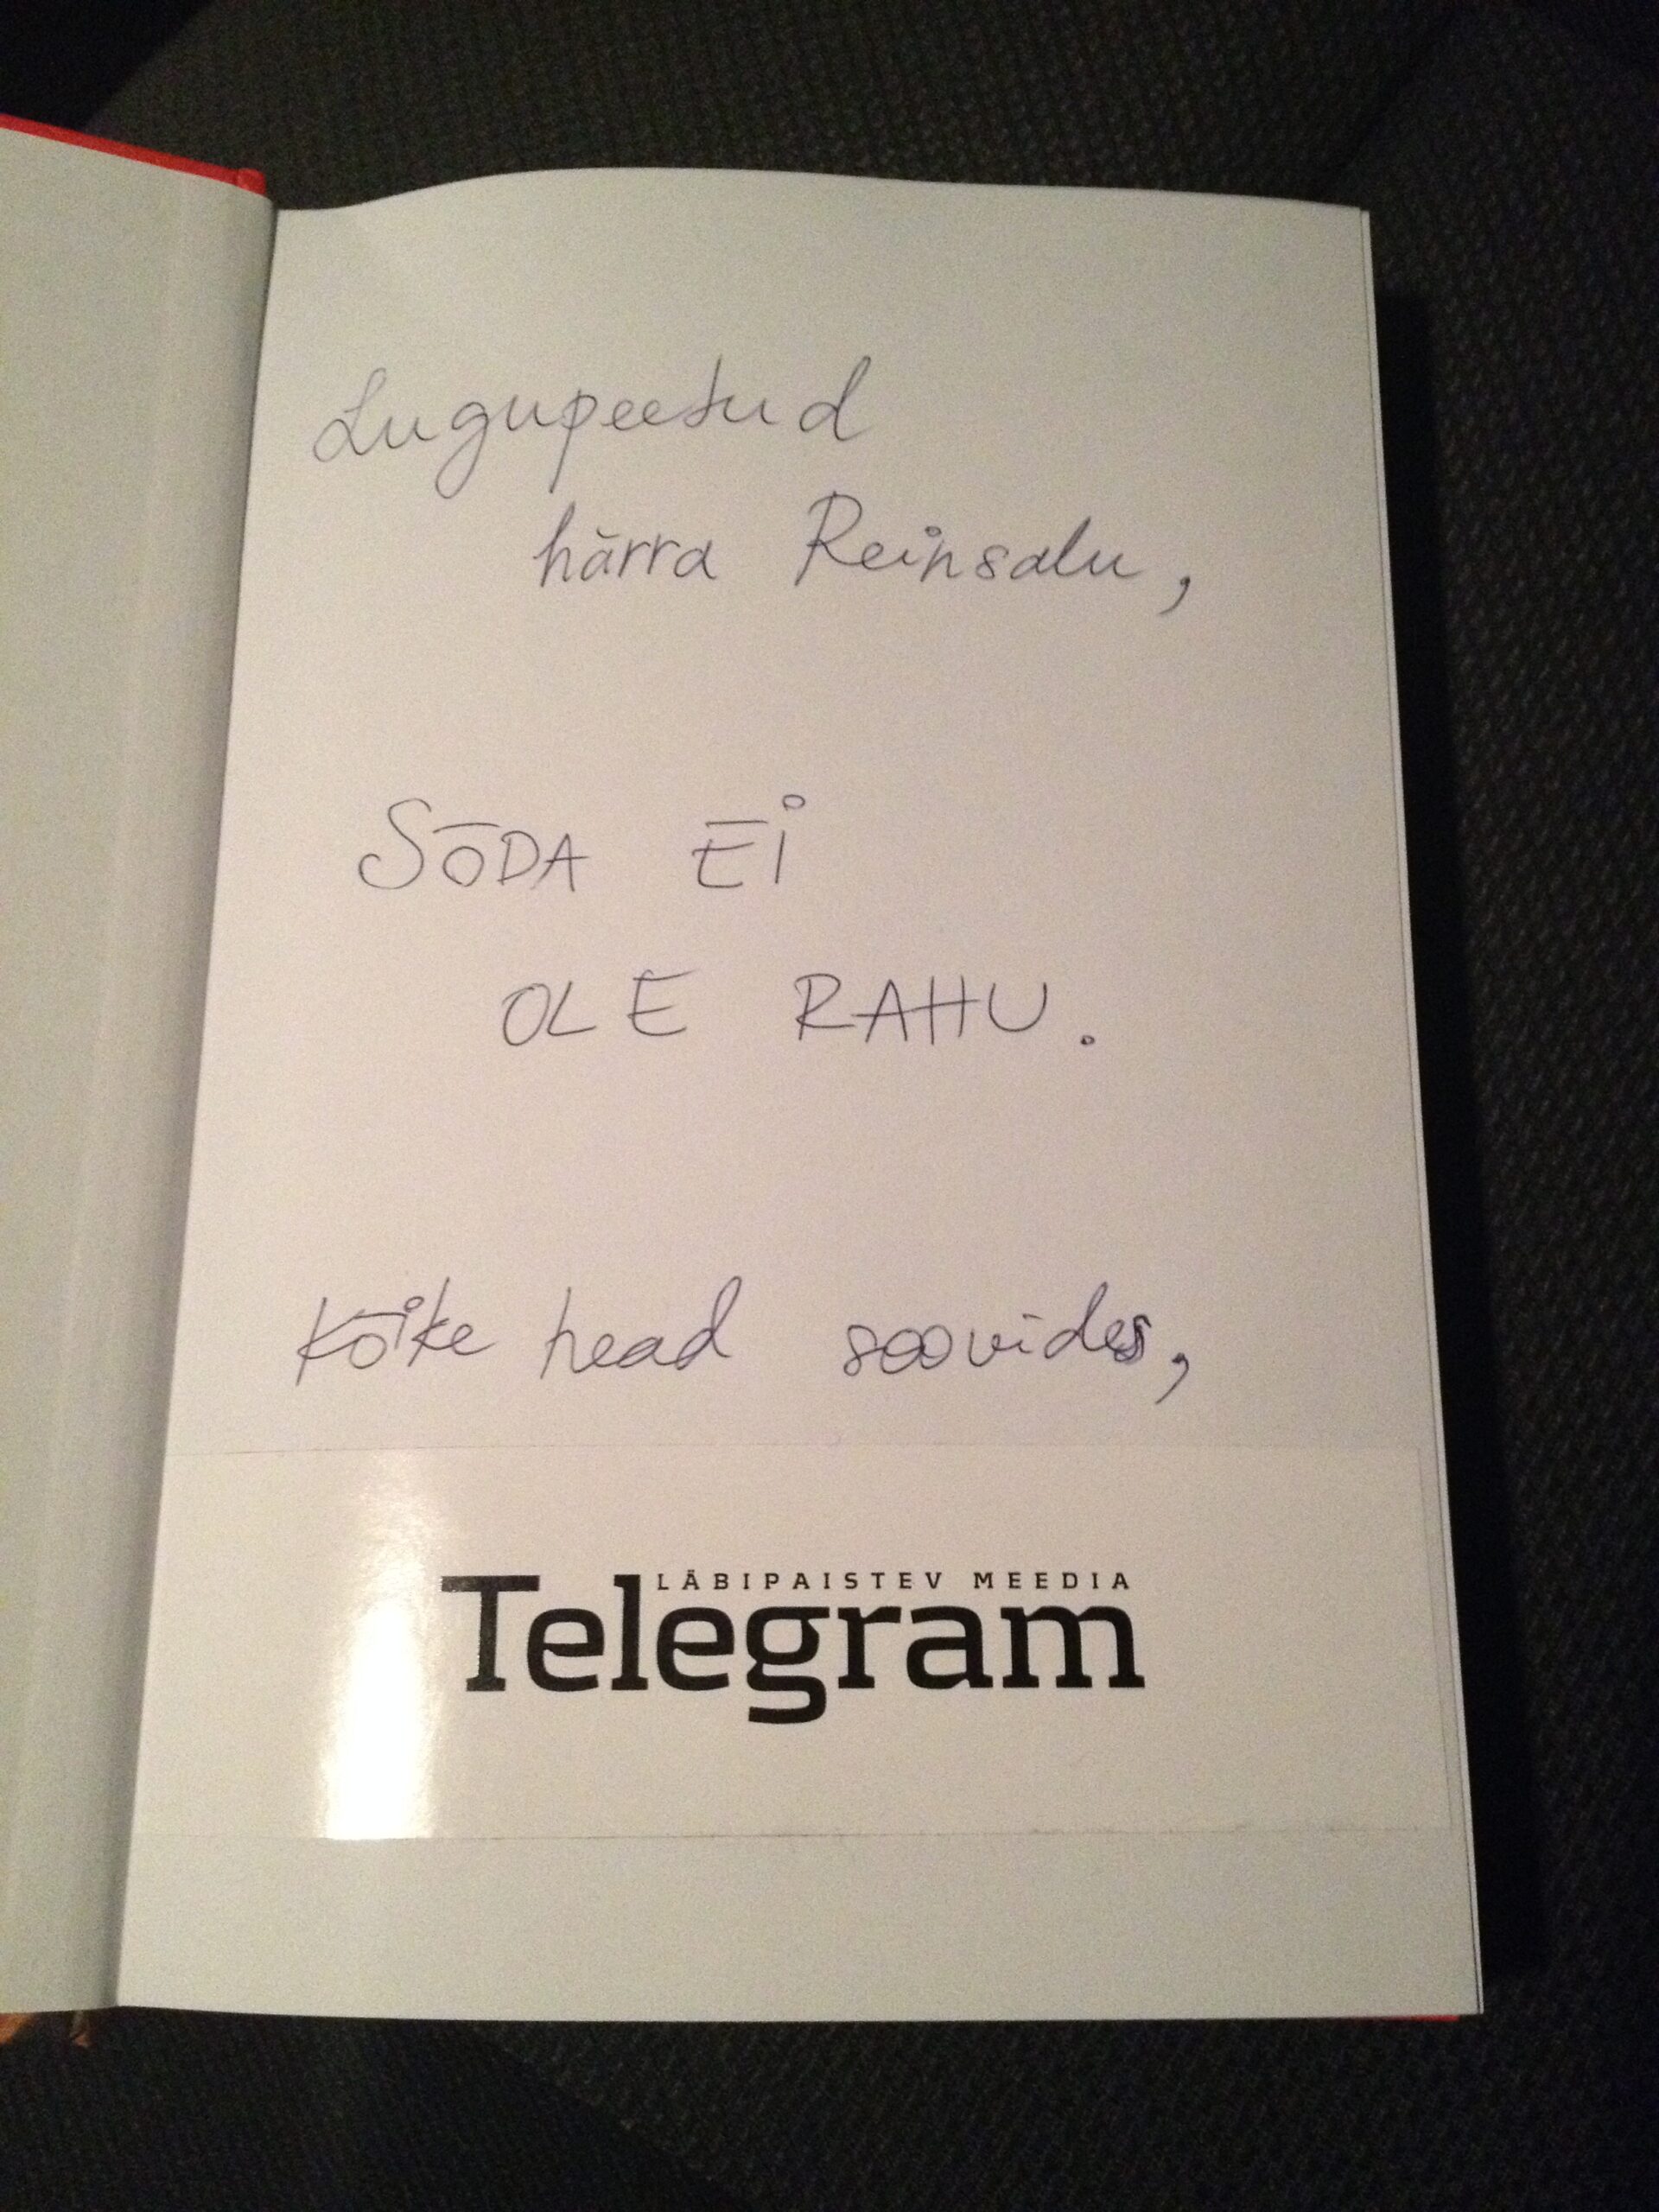 Lugupeetud
härra Reinsalu,
SÕDA EI
OLE RAHU.
Kõike head soovides,
LÄBIPAISTEV MEEDIA
Telegram